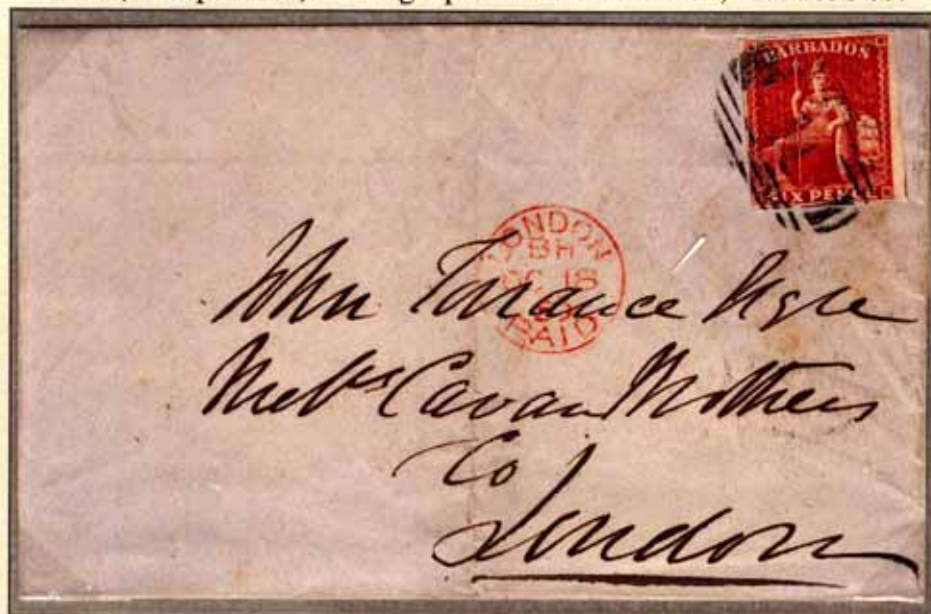 BARBADOS
SIX PENCE
LONDON
BH
OC 18
PAID
John Torrance Esqre
Mess.rs Cavan Brothers
Co
London